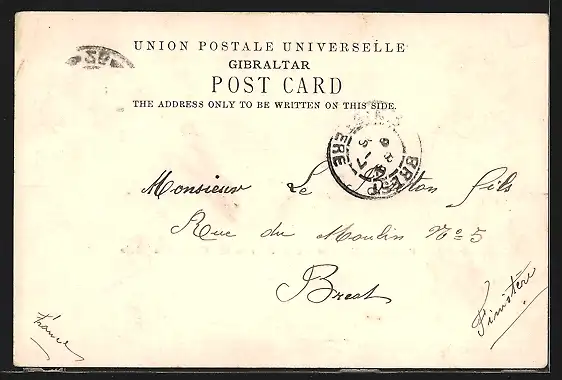 UNION POSTALE UNIVERSELLE
GIBRALTAR
POST CARD
THE ADDRESS ONLY TO BE WRITTEN ON THIS SIDE.
BREST
Monsieur Le fils
Rue du Moulin No 5
Brest
Finistère
France